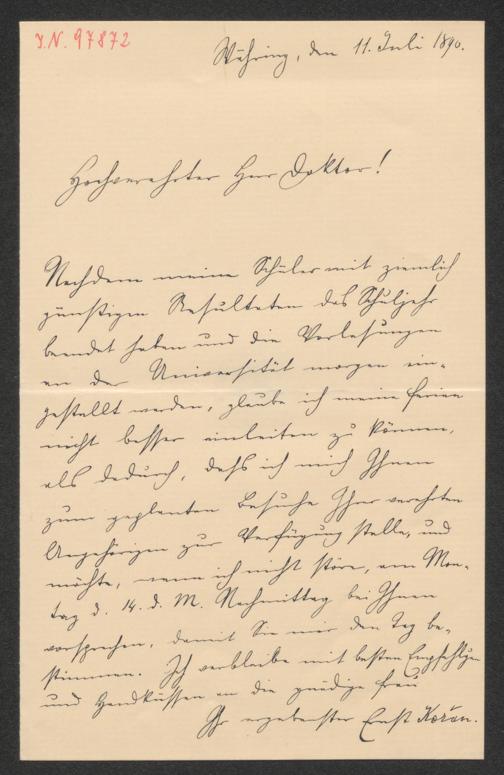 I.N. 97872
Währing, den 11. Juli 1890.
Hochverehrter Herr Doktor!
Nachdem meine Schüler mit ziemlich
günstigen Resultaten das Schuljahr
beendet haben und die Vorlesungen
an der Universität morgen ein-
gestellt werden, glaube ich meine Ferien
nicht besser einleiten zu können,
als dadurch, daß ich mich Ihnen
zum geplanten Besuche Ihrer verehrten
Angehörigen zur Verfügung stelle, und
möchte, wenn ich nicht störe, am Mon-
tag d. 14. d. M. Nachmittag bei Ihnen
vorsprechen, damit Sie mir den Tag be-
stimmen. Ich verbleibe mit besten Empfehlungen
und Handküssen an die gnädige Frau
Ihr ergebenster Ernst